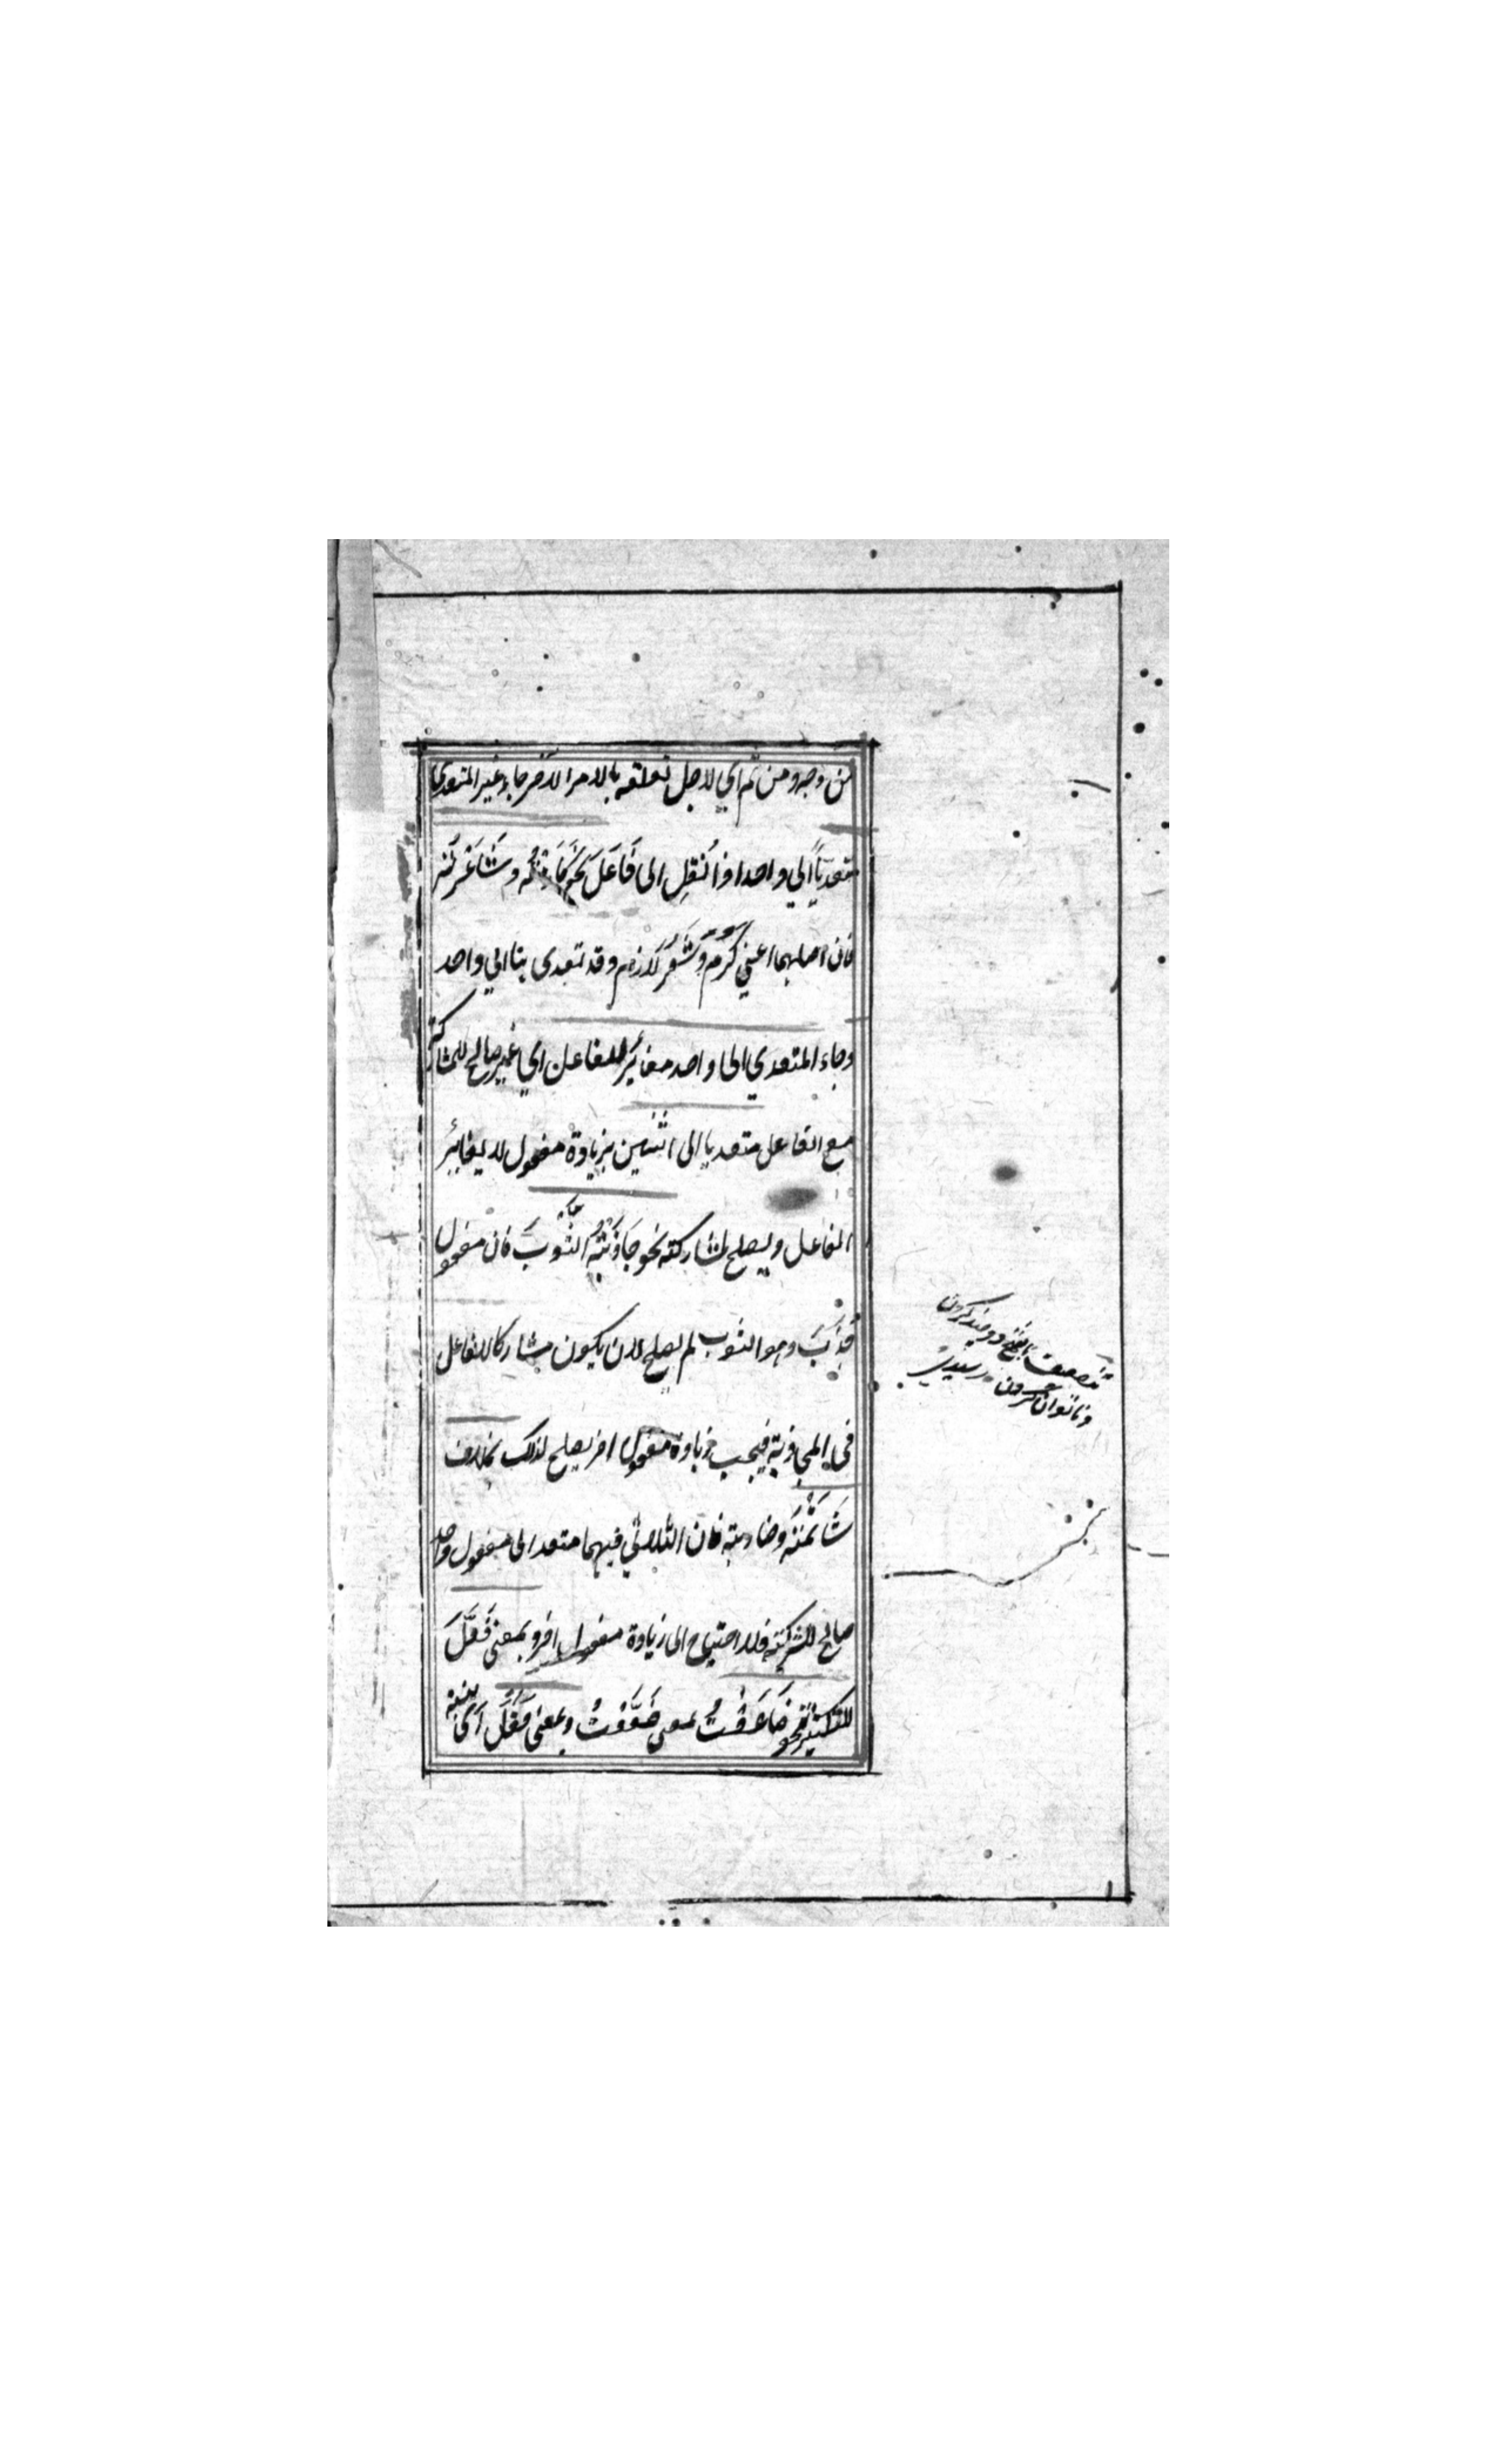 من وجه ومن ثم اي لاجل تعلقه بالامر الاخر جاء غير المتعدي
متعديًا الي واحد اذا نُقِل الى فَاعَلَ نحو كَارَمْتُه وشَاعَرْتُه
فان اصلهما اعني كَرُمَ وشَعُرَ لازم وقد تعدى بنا الي واحد
وجاء المتعدي الى واحد مغائر للفاعل اي غير صالح للمشاركة
مع الفاعل متعديا الى اثنين بزيادة مفعول لا يغائر
الفاعل ويصلح لمشاركته نحو جَاذَبْتُه الثَّوبَ فان مفعول
جَذَبَ وهو الثوب لم يصلح لان يكون مشاركا للفاعل
في المجاذبة فيجب زيادة مفعول اخر يصلح لذلك بخلاف
شَاتَمْتُه وضاربته فان الثلاثي فيهما متعد الى مفعول واحد
صالح للشركة فلا احتياج الى زيادة مفعول اخر وبمعنى فَعَّلَ
للتكثير نحو ضَاعَفْتُ بمعنى ضَعَّفْتُ وبمعنى فَعَلَ اي
تضعيف دوچند كردن
وناتوان كردن